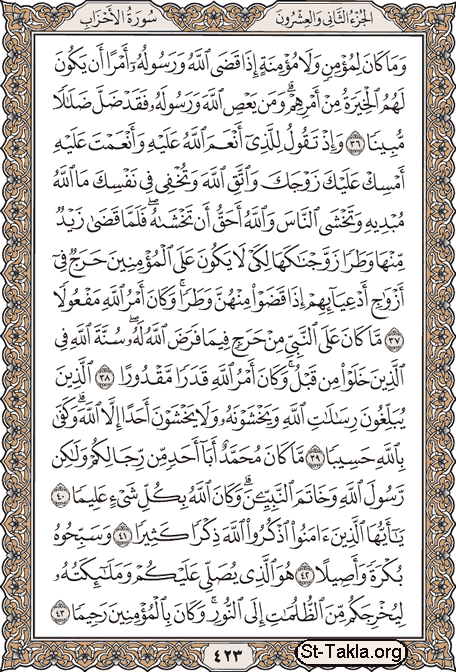 الجزء الثاني والعشرون
سورة الأحزاب
وَمَا كَانَ لِمُؤْمِنٍ وَلَا مُؤْمِنَةٍ إِذَا قَضَى ٱللَّهُ وَرَسُولُهُۥٓ أَمْرًا أَن يَكُونَ
لَهُمُ ٱلْخِيَرَةُ مِنْ أَمْرِهِمْ ۗ وَمَن يَعْصِ ٱللَّهَ وَرَسُولَهُۥ فَقَدْ ضَلَّ ضَلَـٰلًا
مُّبِينًا ٣٦ وَإِذْ تَقُولُ لِلَّذِىٓ أَنْعَمَ ٱللَّهُ عَلَيْهِ وَأَنْعَمْتَ عَلَيْهِ
أَمْسِكْ عَلَيْكَ زَوْجَكَ وَٱتَّقِ ٱللَّهَ وَتُخْفِى فِى نَفْسِكَ مَا ٱللَّهُ
مُبْدِيهِ وَتَخْشَى ٱلنَّاسَ وَٱللَّهُ أَحَقُّ أَن تَخْشَىٰهُ ۖ فَلَمَّا قَضَىٰ زَيْدٌ
مِّنْهَا وَطَرًا زَوَّجْنَـٰكَهَا لِكَىْ لَا يَكُونَ عَلَى ٱلْمُؤْمِنِينَ حَرَجٌ فِىٓ
أَزْوَٰجِ أَدْعِيَآئِهِمْ إِذَا قَضَوْا۟ مِنْهُنَّ وَطَرًا ۚ وَكَانَ أَمْرُ ٱللَّهِ مَفْعُولًا
٣٧ مَّا كَانَ عَلَى ٱلنَّبِىِّ مِنْ حَرَجٍ فِيمَا فَرَضَ ٱللَّهُ لَهُۥ ۖ سُنَّةَ ٱللَّهِ فِى
ٱلَّذِينَ خَلَوْا۟ مِن قَبْلُ ۚ وَكَانَ أَمْرُ ٱللَّهِ قَدَرًا مَّقْدُورًا ٣٨ ٱلَّذِينَ
يُبَلِّغُونَ رِسَـٰلَـٰتِ ٱللَّهِ وَيَخْشَوْنَهُۥ وَلَا يَخْشَوْنَ أَحَدًا إِلَّا ٱللَّهَ ۗ وَكَفَىٰ
بِٱللَّهِ حَسِيبًا ٣٩ مَّا كَانَ مُحَمَّدٌ أَبَآ أَحَدٍ مِّن رِّجَالِكُمْ وَلَـٰكِن
رَّسُولَ ٱللَّهِ وَخَاتَمَ ٱلنَّبِيِّـۧنَ ۗ وَكَانَ ٱللَّهُ بِكُلِّ شَىْءٍ عَلِيمًا ٤٠
يَـٰٓأَيُّهَا ٱلَّذِينَ ءَامَنُوا۟ ٱذْكُرُوا۟ ٱللَّهَ ذِكْرًا كَثِيرًا ٤١ وَسَبِّحُوهُ
بُكْرَةً وَأَصِيلًا ٤٢ هُوَ ٱلَّذِى يُصَلِّى عَلَيْكُمْ وَمَلَـٰٓئِكَتُهُۥ
لِيُخْرِجَكُم مِّنَ ٱلظُّلُمَـٰتِ إِلَى ٱلنُّورِ ۚ وَكَانَ بِٱلْمُؤْمِنِينَ رَحِيمًا ٤٣
٤٢٣
St-Takla.org